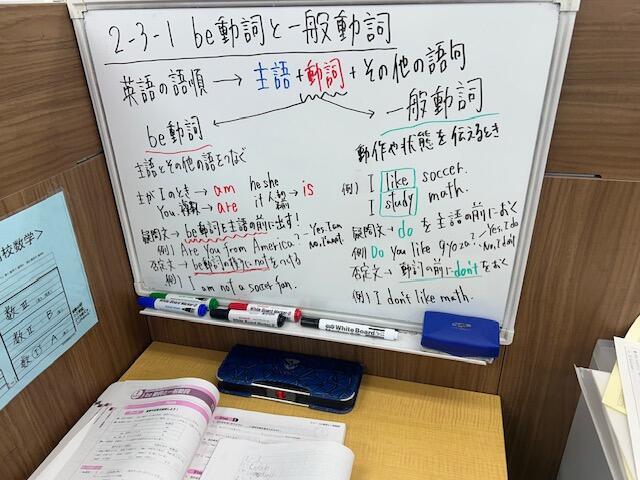 2-3-1 be動詞と一般動詞
英語の語順 → 主語+動詞+その他の語句
be動詞
主語とその他の語をつなぐ
主がIのとき→ am he she
You, 複数→ are it 人名 → is
疑問文→ be動詞を主語の前に出す!
例) Are you from America?
否定文→ be動詞の後ろにnotをつける
例) I am not a soccer fan.
一般動詞
動作や状態を伝えるとき
例) I like soccer.
I study math.
疑問文→ do を主語の前におく
例) Do you like gyoza?
否定文→ 動詞の前にdon'tをおく
例) I don't like math.
White Board
校数学>
数Ⅲ
数Ⅱ B
数Ⅰ A